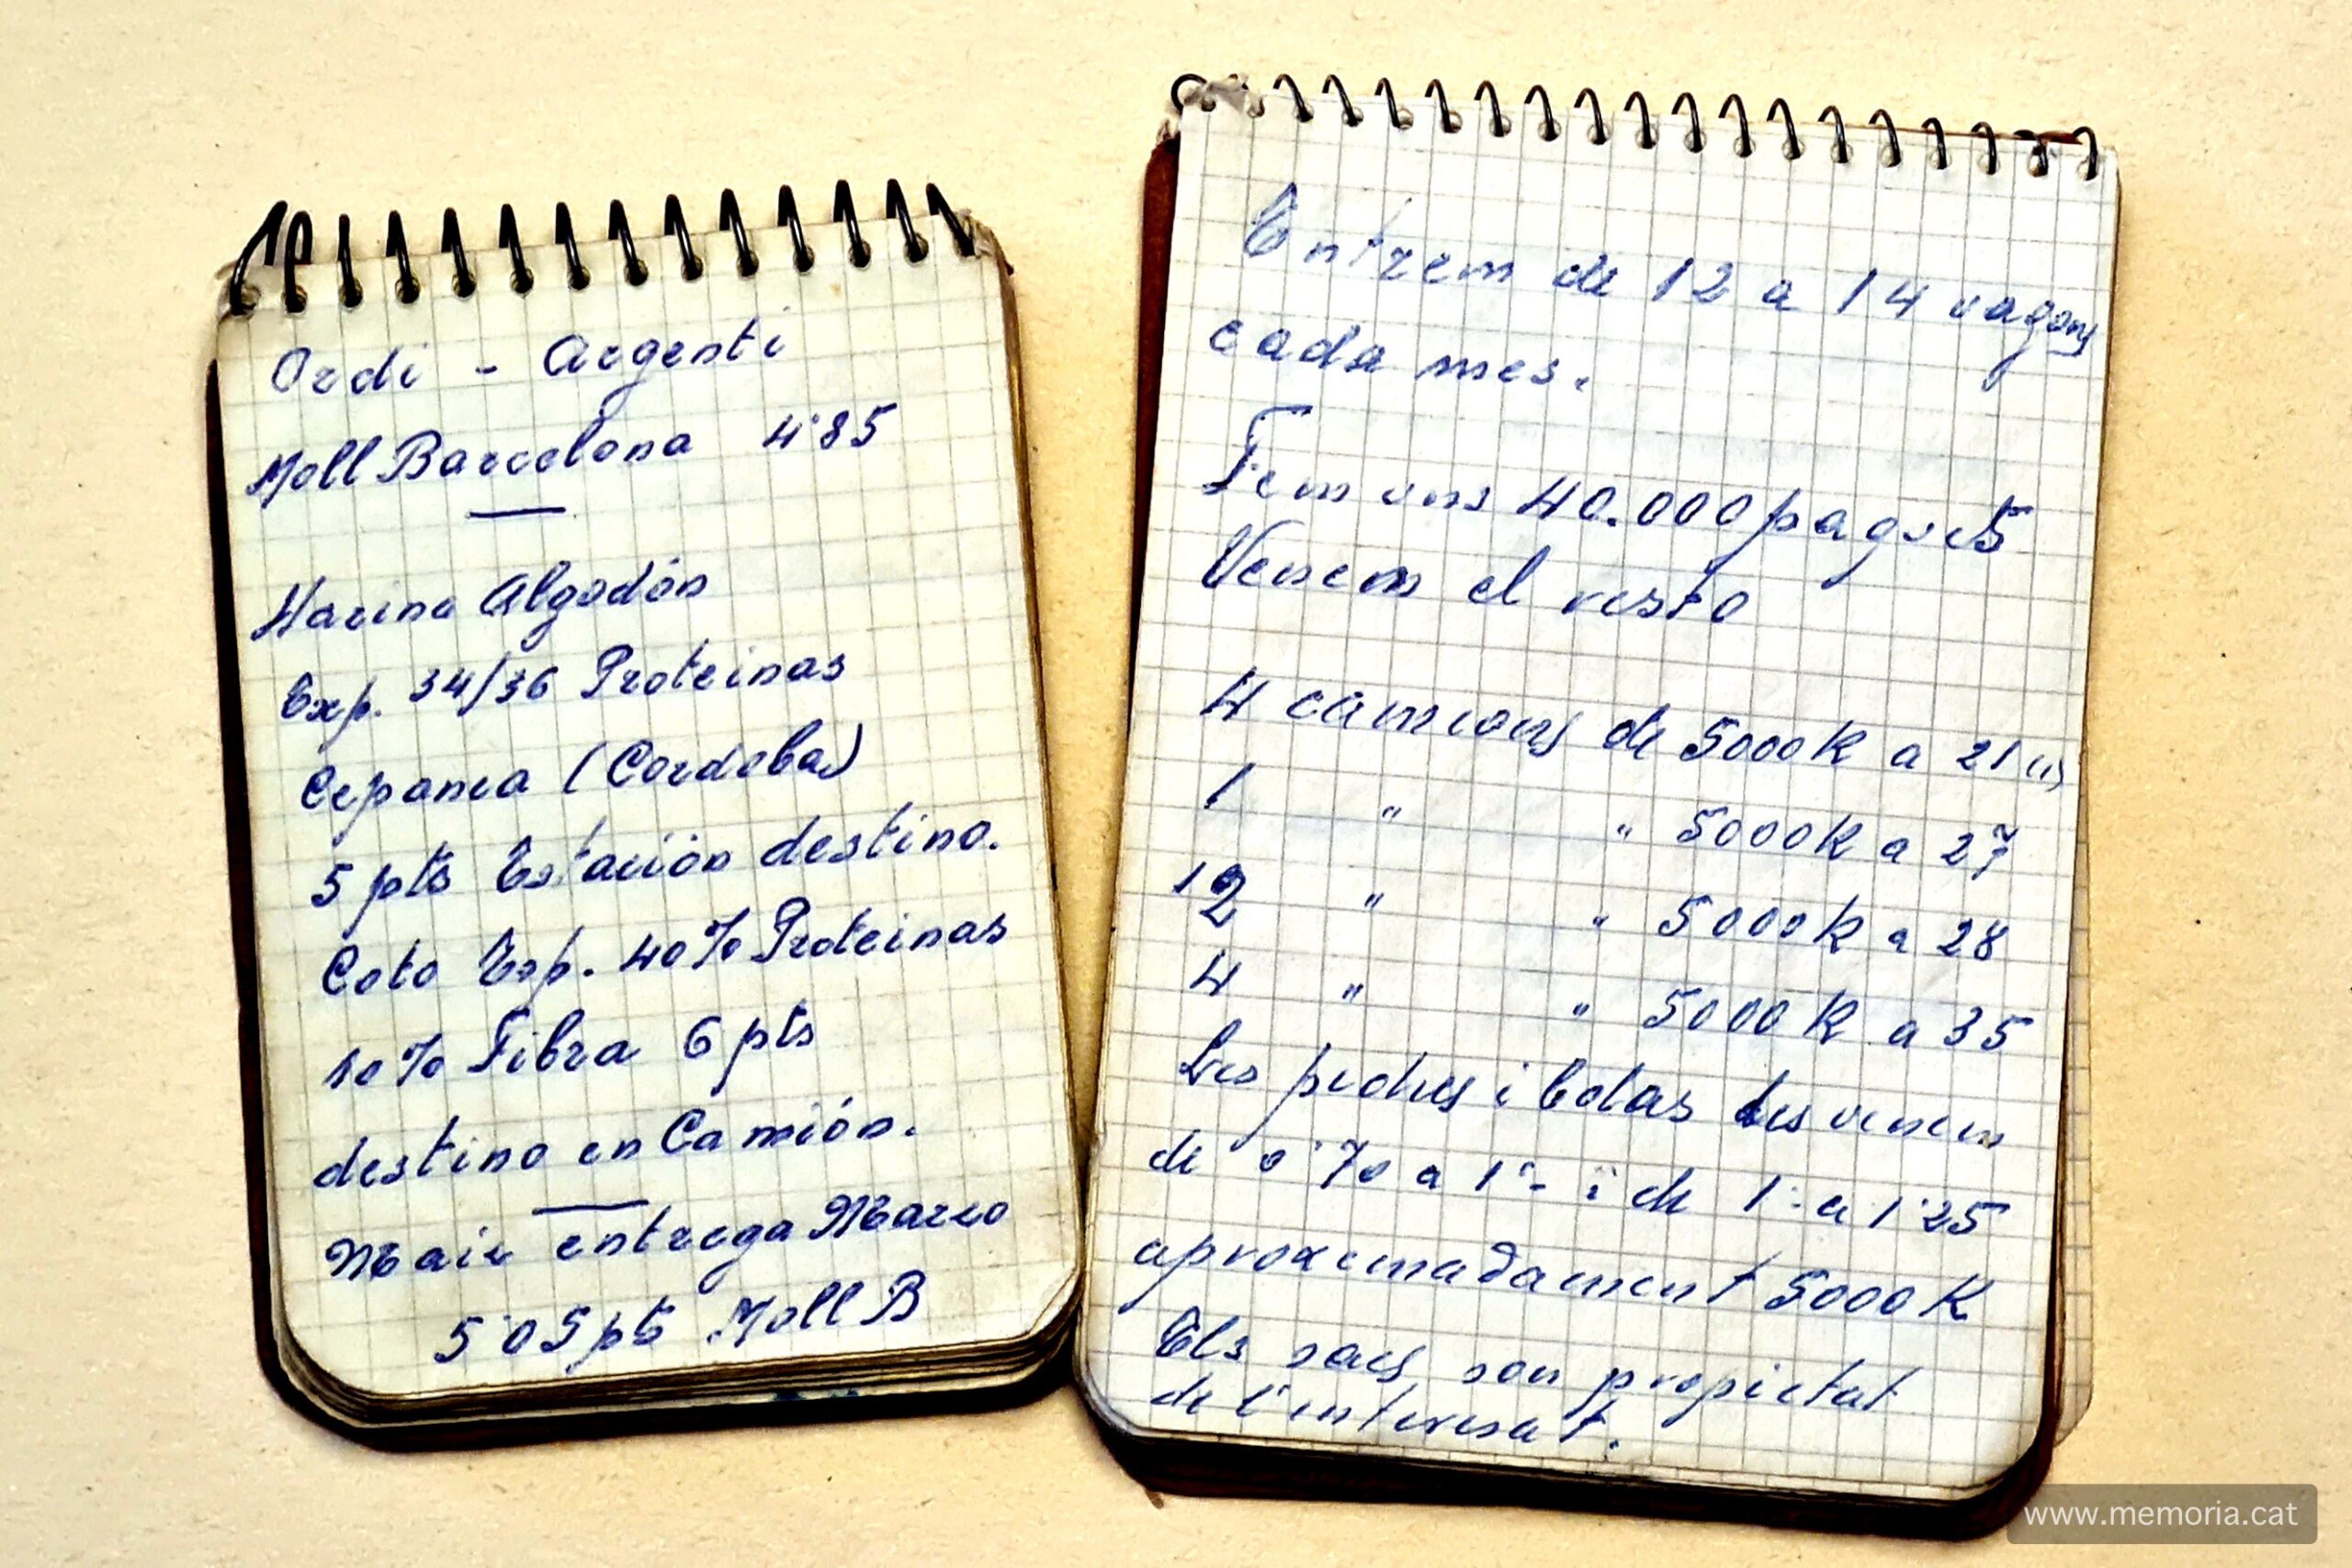 Ordi - Argenti
Moll Barcelona 4'85
Harina Algodón
Exp. 34/36 Proteinas
Cepansa (Cordoba)
5 pts Estación destino.
Coto Esp. 40% Proteinas
10% Fibra 6 pts
destino en Camión.
Maiz entrega Marzo
5'05 pts Moll B
Entrem de 12 a 14 vagons
cada mes.
Fem uns 40.000 paquets
Venem el resto
4 camions de 5000 K a 21
1 " " 5000 K a 27
12 " " 5000 K a 28
4 " " 5000 K a 35
Les pedres i bolas les venem
de 0'70 a 1'- i de 1'- a 1'25
aproximadament 5000 K
Els sacs son propietat
de l'interesat.
www.memoria.cat